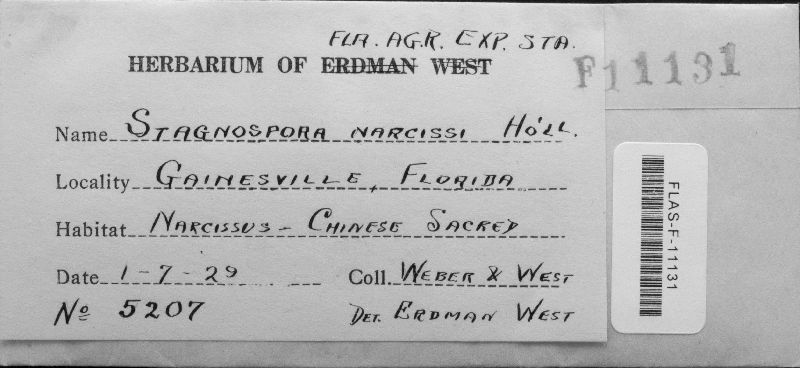 FLA. AGR. EXP. STA.
HERBARIUM OF ERDMAN WEST
F11131
Name STAGNOSPORA NARCISSI HÖLL.
Locality GAINESVILLE, FLORIDA
Habitat NARCISSUS - CHINESE SACRED
Date 1-7-29 Coll. WEBER & WEST
No 5207 DET. ERDMAN WEST
FLAS-F-11131